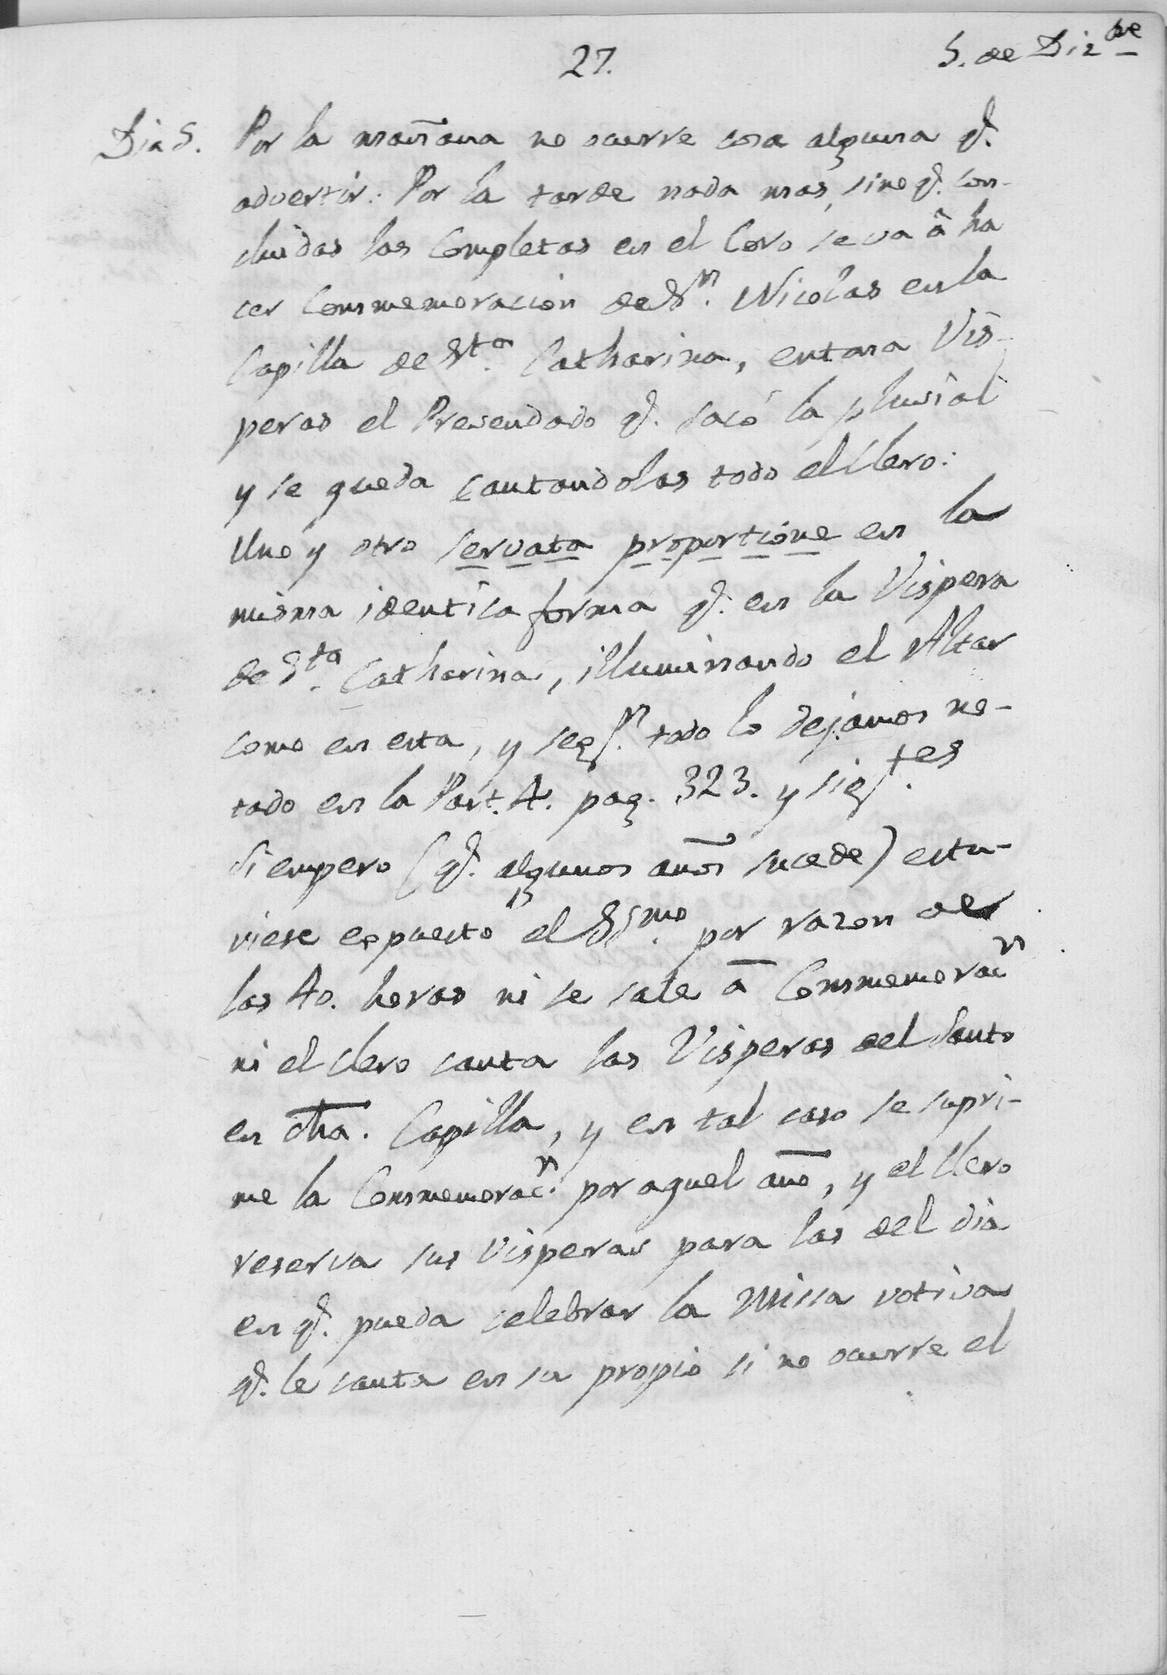 27.
5. de Diz.bre
Dia 5. Por la mañana no ocurre cosa alguna q.
advertir. Por la tarde nada mas, sino q. con-
cluidas las Completas en el Coro se va â ha
cer Conmemoracion de Sn. Nicolas en la
Capilla de Sta. Catharina, entona Vis-
peras el Presendado q. sacó la pluvial
y se queda cantandolas todo el Clero:
Uno y otro servata proportione en la
misma identica forma q. en la Vispera
de Sta. Catharina, illuminando el Altar
como en esta, y seg.n todo lo dejamos no-
tado en la Part. 4. pag. 323. y sig.tes
Si empero (q. algunos años sucede) estu-
viese espuesto el SSmo. por razon de
las 40. horas ni se sale â Conmemorac.n
ni el Clero canta las Visperas del Santo
en dha. Capilla, y en tal caso se supri-
me la Conmemorac.n por aquel año, y el Clero
reserva sus Visperas para las del dia
en q. pueda celebrar la Missa votiva
q. le canta en su propio si no ocurre el